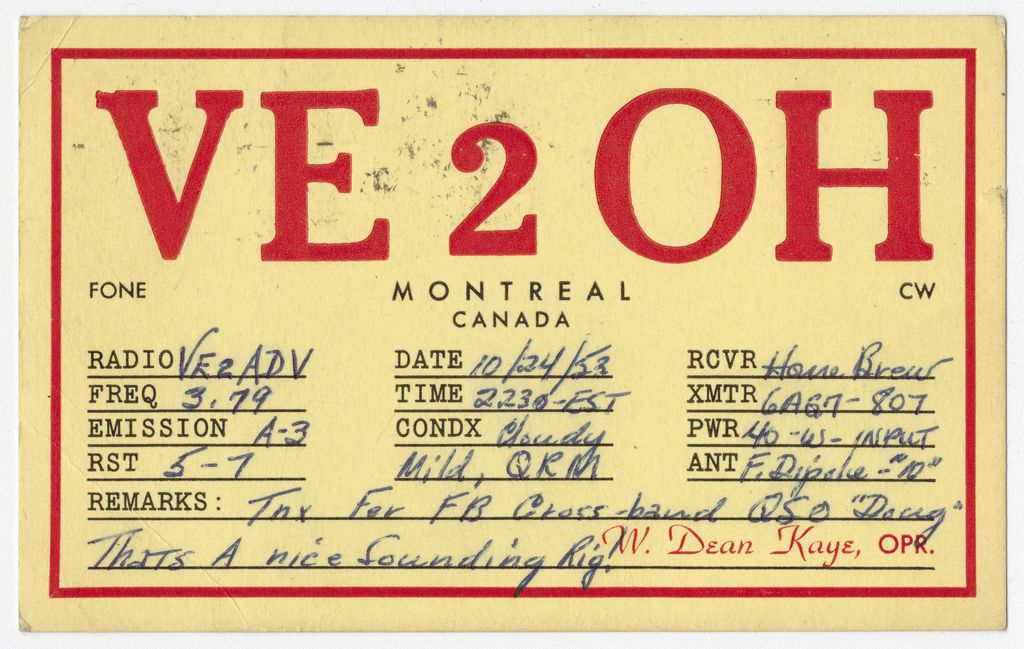 VE2OH
FONE MONTREAL CW
CANADA
RADIO VE2ADV DATE 10/24/53 RCVR Home Brew
FREQ 3.79 TIME 2230-EST XMTR 6AG7-807
EMISSION A-3 CONDX Cloudy PWR 40-W-INPUT
RST 5-7 Mild, QRM ANT F. Dipole-"10"
REMARKS: Tnx For FB Cross-band QSO "Doug"
Thats A nice Sounding Rig! W. Dean Kaye, OPR.